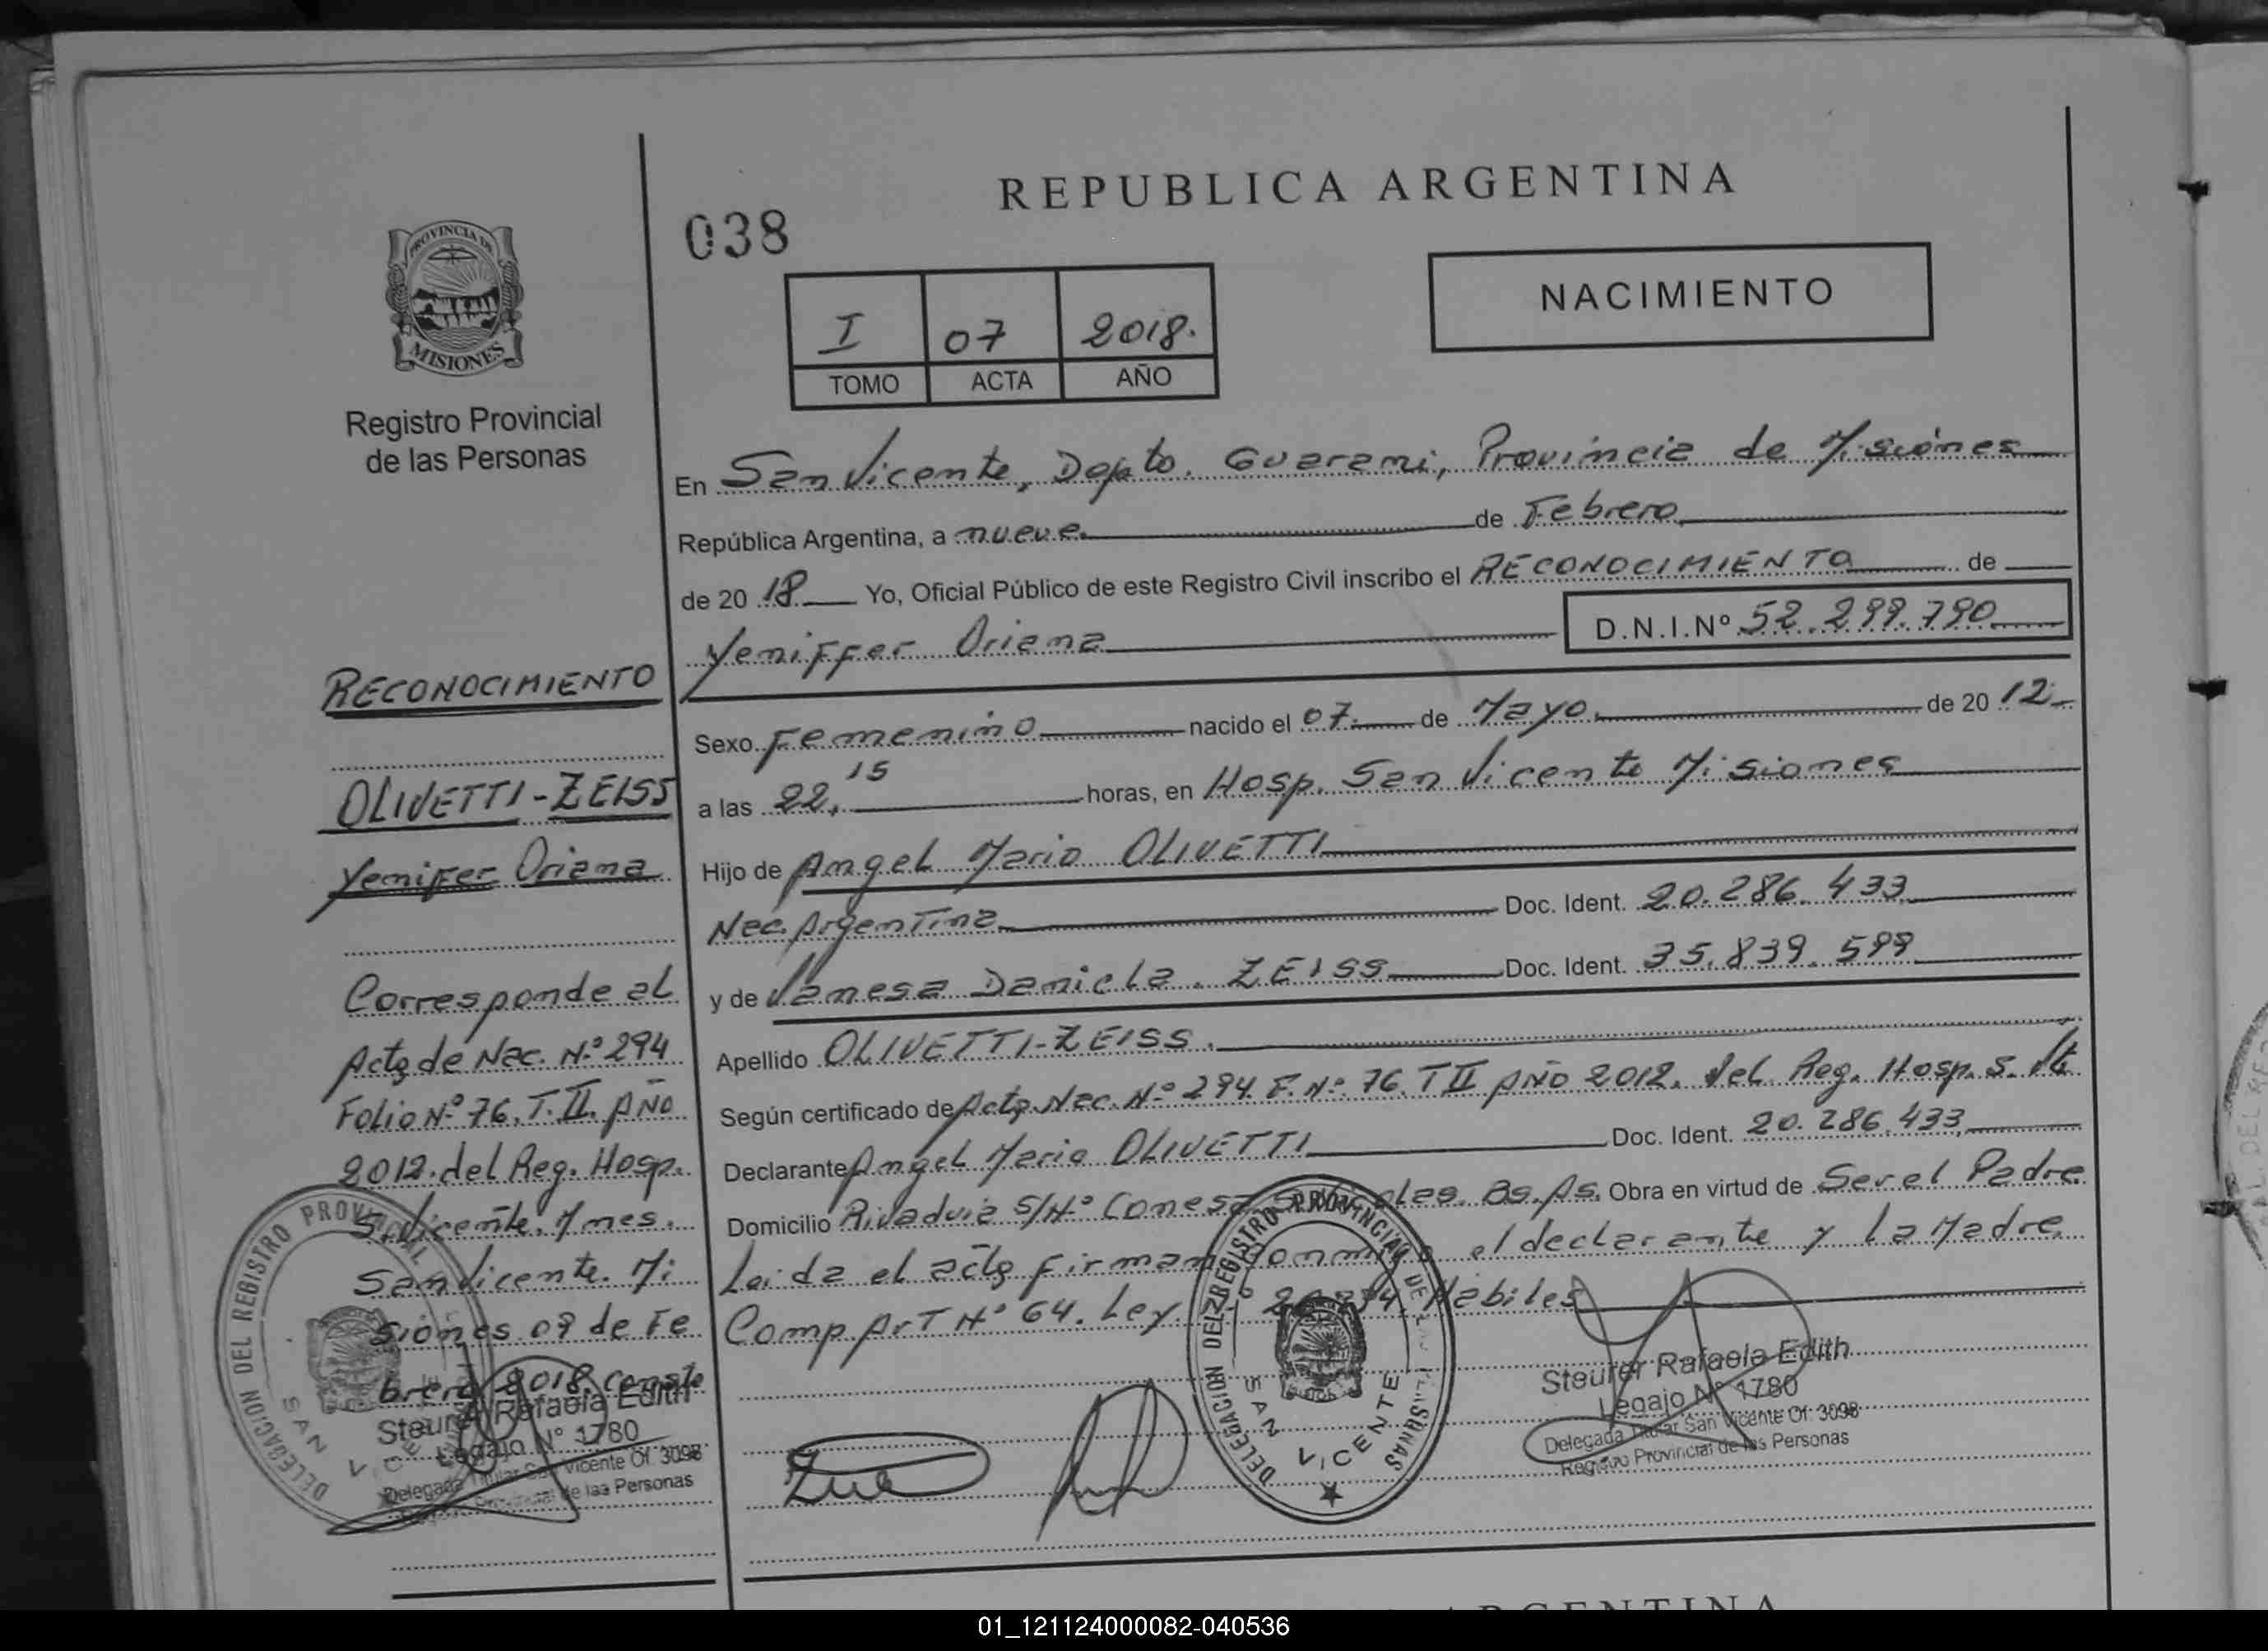 REPUBLICA ARGENTINA
038
PROVINCIA DE
MISIONES
Registro Provincial
de las Personas
NACIMIENTO
I 07 2018.
TOMO ACTA AÑO
En San Vicente, Depto. Guarani, Provincia de Misiones
República Argentina, a nueve. de Febrero
de 20 18 Yo, Oficial Público de este Registro Civil inscribo el RECONOCIMIENTO de
Yeniffer Oriana D.N.I.Nº 52.299.790
Sexo Femenino nacido el 07. de Mayo. de 20 12
a las 22,15 horas, en Hosp. San Vicente Misiones
Hijo de Angel Mario OLIVETTI
Nac. Argentina Doc. Ident. 20.286.433
y de Vanesa Daniela. ZEISS Doc. Ident. 35.839.599
Apellido OLIVETTI-ZEISS.
Según certificado de Acta Nac. Nº 294 F. Nº 76 T II AÑO 2012. del Reg. Hosp. S. Vte
Declarante Angel Mario OLIVETTI Doc. Ident. 20.286.433
Domicilio Rivadvia S/Nº Conesa Bs. As. Obra en virtud de Ser el Padre
Leida el acta firman conmigo el declarante y La Madre
Comp. Art Nº 64. Ley Habiles
RECONOCIMIENTO
OLIVETTI-ZEISS
Yenifer Oriana
Corresponde al
Acta de Nac. Nº 294
Folio Nº 76. T. II. AÑO
2012. del Reg. Hosp.
S. Vicente. Mnes.
San Vicente. Mi
siones 09 de Fe
brero 2018. Conste
Steurer Rafaela Edith
Legajo Nº 1780
Delegada Titular San Vicente Of. 3098
Registro Provincial de las Personas
DELEGACION DEL REGISTRO PROVINCIAL
SAN VICENTE
DELEGACION DEL REGISTRO PROVINCIAL DE LAS PERSONAS
SAN VICENTE
Steurer Rafaela Edith
Legajo Nº 1780
Delegada Titular San Vicente Of. 3098
Registro Provincial de las Personas
ARGENTINA
01_121124000082-040536